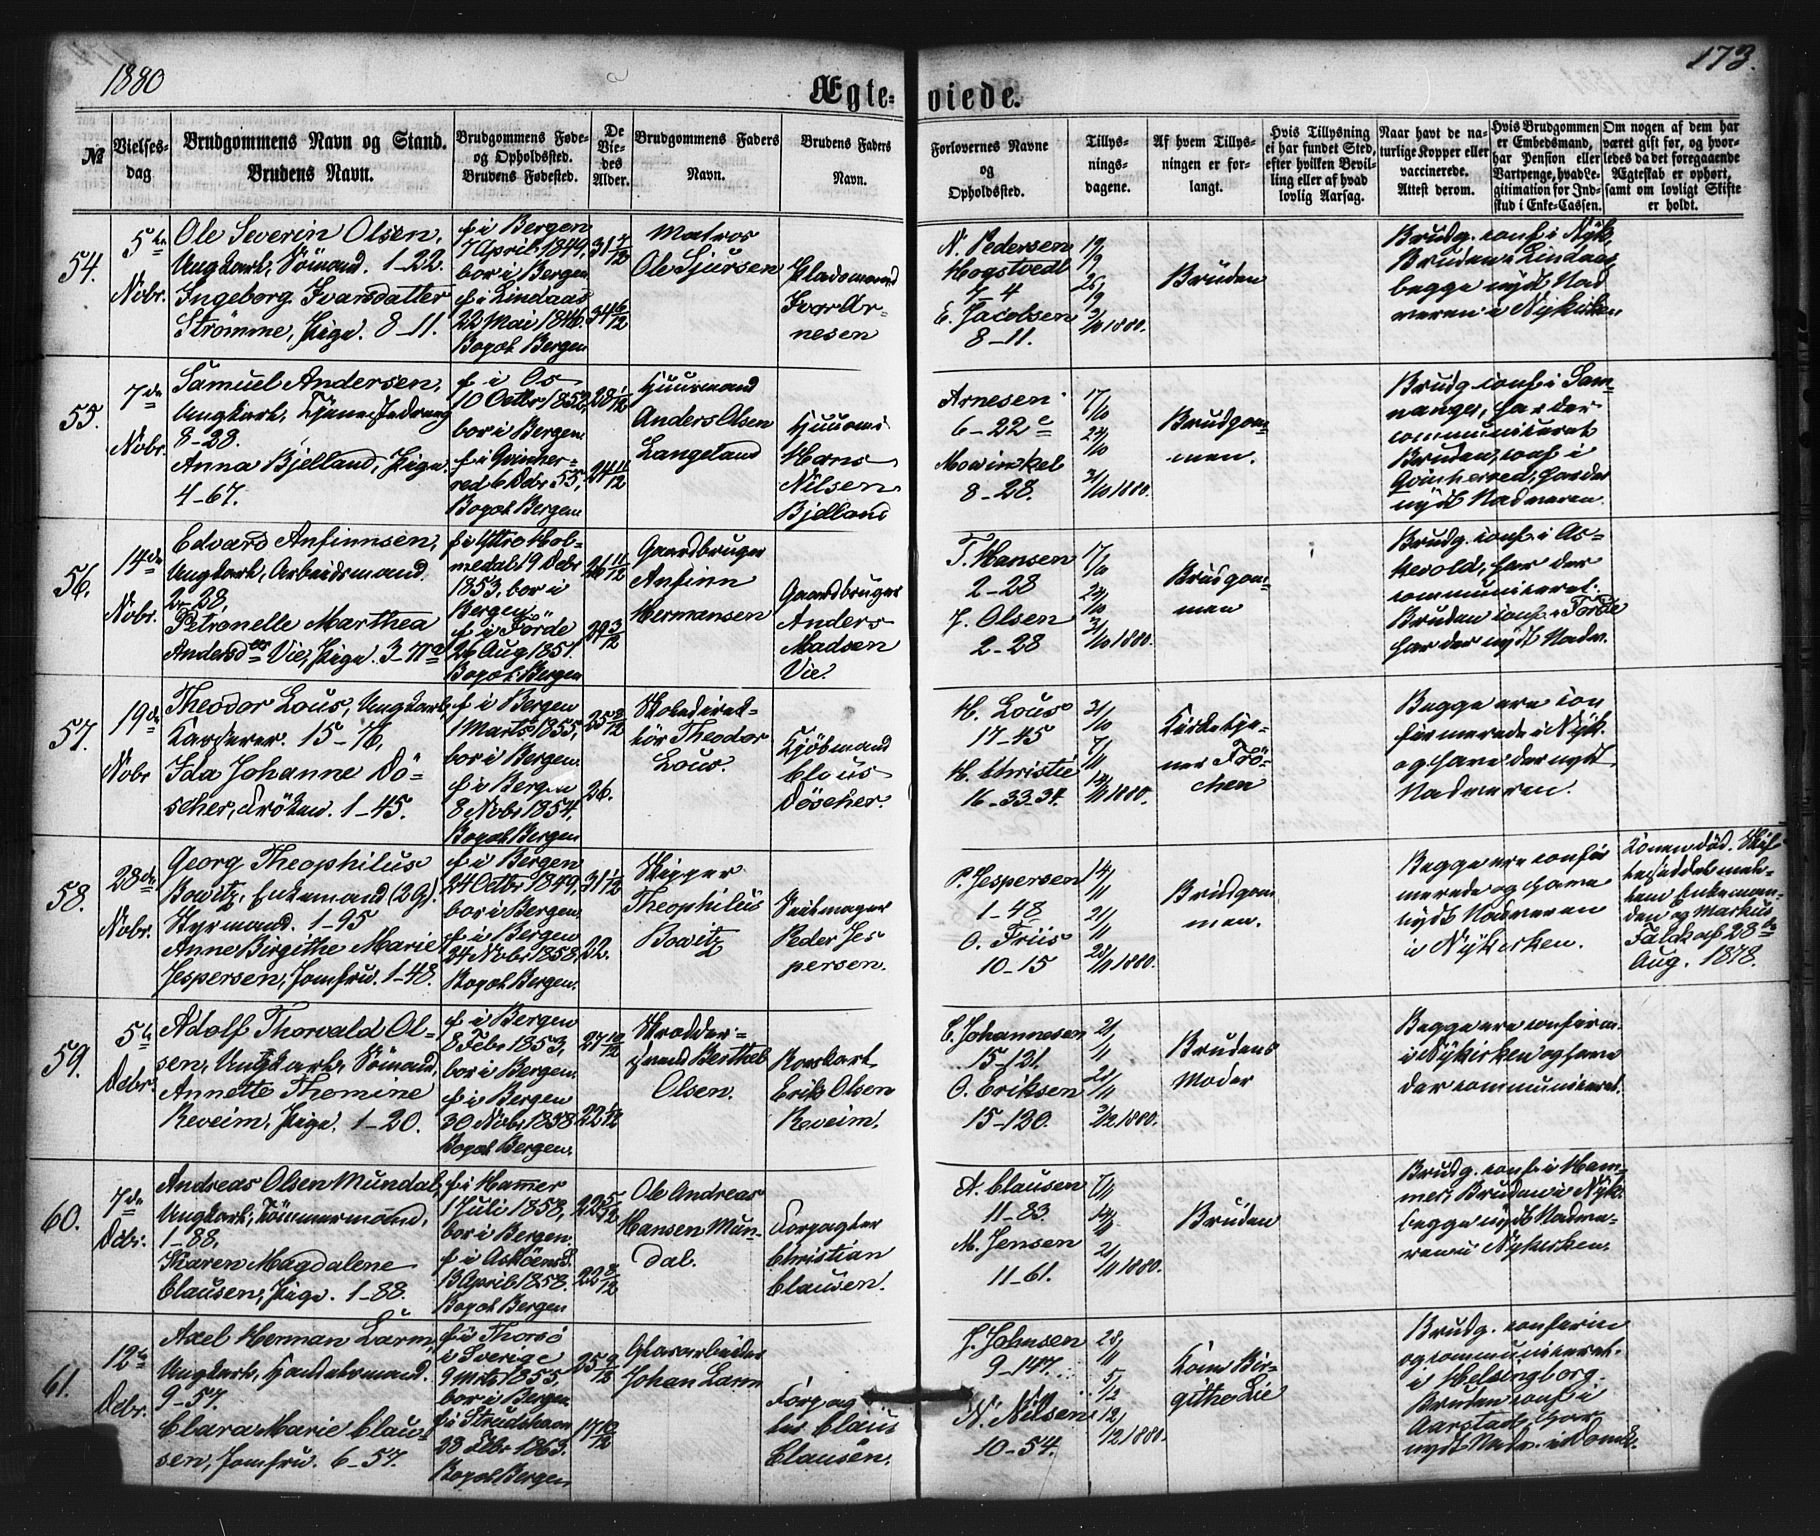 1880
173.
Ægte-viede.
№
Vielses-
dag
Brudgommens Navn og Stand.
Brudens Navn.
Brudgommens Føde-
og Opholdssted.
Brudens Fødested.
De
Vie-
des
Alder.
Brudgommens Faders
Navn.
Brudens Faders
Navn.
Forlovernes Navne
og
Opholdssted.
Tillys-
nings-
dagene.
Af hvem Tillys-
ningen er for-
langt.
Hvis Tillysning
ei har fundet Sted,
efter hvilken Bevil-
ling eller af hvad
lovlig Aarsag.
Naar havt de na-
turlige Kopper eller
vaccinerede.
Attest derom.
Hvis Brudgommen
er Embedsmand,
har Pension eller
Vartpenge, hvad Le-
gitimation for Ind-
skud i Enke-Cassen.
Om nogen af dem har
været gift før, og hvor-
ledes da det foregaaende
Ægteskab er ophørt,
samt om lovligt Skifte
er holdt.
54.
5te
Nobr.
Ole Severin Olsen,
Ungkarl, Sömand. 1-22.
Ingeborg Ivarsdatter
Strömme, Pige. 8-11.
f. i Bergen
7 April 1849,
bor i Bergen
f. i Lindaas
22 Mai 1846.
Bopæl Bergen
31 7/12
34 6/12
Matros
Ole Sjursen
Gladsmand
Ivar Ar-
nesen
N. Pedersen
Hogstvedt
7-4
E. Jacobsen
8-11.
19/9
26/9
3/10 1880.
Bruden
Brudg. conf. i Nyk,
Bruden i Lindaas
begge nydt Nad
veren i Nykirken
55.
7de
Nobr.
Samuel Andersen,
Ungkarl, Tjenestedreng
8-28.
Anna Bjelland, Pige.
4-67.
f. i Os
10 Octbr 1852,
bor i Bergen
f. i Qvinher-
red 6 Debr 55,
Bopæl Bergen
28 1/12
24 11/12
Huusmand
Anders Olsen
Langeland
Huusm.
Hans
Nilsen
Bjelland
Arnesen
6-22c
Mowinkel
8-28.
17/10
24/10
31/10 1880.
Brudgom-
men.
Brudg. conf. i Sam-
nanger, har der
communiceret
Bruden, conf. i
Qvinherred, har der
nydt Nadveren.
56.
14de
Nobr.
Edvard Anfinnsen,
Ungkarl, Arbeidsmand.
2-28,
Petronelle Marthea
Andersdtr Vie, Pige. 3-77a
f. i Yttre Hol-
medal 19 Debr
1853, bor i
Bergen
f. i Förde
20 Aug 1851.
Bopæl Bergen
26 11/12
29 3/12
Gaardbruger
Anfinn
Hermansen
Gaardbruger
Anders
Madsen
Vie.
T. Hansen
2-28
J. Olsen
2-28
17/10
24/10
31/10 1880.
Brudgom-
men
Brudg. conf. i As-
kevold, har der
communiceret.
Bruden conf. i Förde
har der nydt Nadv.
57.
19de
Nobr
Theodor Lous, Ungkarl,
Kasserer. 15-76,
Ida Johanne Dö-
scher, Fröken. 1-45.
f. i Bergen
1 Marts 1855,
bor i Bergen.
f. i Bergen
8 Nobr 1854,
Bopæl Bergen
25 8/12
26.
Skoledirek-
tör Theodor
Lous.
Kjöbmand
Claus
Döscher.
H. Lous
17-45
H. Christie
16-33.34.
31/10
7/11
14/11 1880.
Kirketje-
ner Frö-
chen
Begge ere con
firmerede i Nyk.
og have der nydt
Nadveren.
58.
28de
Nobr.
Georg Theophilus
Bowitz, Enkemand (2 G).
Styrmand. 1-95
Anne Birgithe Marie
Jespersen, Jomfru. 1-48.
f. i Bergen
24 Octbr 1849,
bor i Bergen.
f. i Bergen
24 Nobr 1858,
Bopæl Bergen.
31 1/12
22.
Skipper
Theophilus
Bowitz
Seilmager
Peder Jes
persen.
P. Jespersen
1-48
O. Friis
10-15
14/11
21/11
28/11 1880.
Brudgom
men.
Begge ere confir
merede og have
nydt Nadveren
i Nykirken.
Konen död. Skif-
teseddel mel-
lem Enkeman-
den og Markus
Falck af 28de
Aug. 1878.
59.
5te
Debr.
Adolf Thorvald Ol-
sen, Ungkarl, Sömand,
Annette Thomine
Reveim, Pige. 1-20.
f. i Bergen
8 Febr 1853,
bor i Bergen.
f. i Bergen
30 Nobr 1858
Bopæl Bergen.
27 10/12
22 1/12
Skrædder-
svend Berthel
Olsen.
Rorskarl
Erik Olsen
Reveim.
C. Johannesen
15-121.
O. Eriksen
15-120.
21/11
28/11
5/12 1880.
Brudens
Moder
Begge ere confirm.
i Nykirken og have
der communiceret.
60.
7de
Debr.
Andreas Olsen Mundal,
Ungkarl, Tömmermand,
1-88,
Karen Magdalene
Clausen, Pige. 1-88.
f. i Hamer
1 Juli 1858,
bor i Bergen.
f. i Asköens S.
13 April 1858.
Bopæl Bergen
22 5/12
22 8/12
Ole Andreas
Hansen Mun-
dal.
Forpagter
Christian
Clausen.
A. Clausen
11-83.
M. Jensen
11-61.
7/11
14/11
21/11 1880.
Bruden
Brudg. conf. i Ham-
mer, Bruden i Nyk.
begge nydt Nadve-
ren i Nykirken.
61.
12te
Debr.
Axel Herman Larm,
Ungkarl, Handelsmand.
9-57.
Clara Marie Clau-
sen, Jomfru. 6-57.
f. i Thorsö
i Sverige
9 Mrts 1855.
bor i Bergen
f. i Strudshavn
28 Febr 1863.
Bopæl Bergen
25 9/12
17 10/12
Glasarbeider
Johan Larm
Forpag
ter Claus
Clausen.
J. Johnsen
9-147.
N. Nilsen
10-54.
28/11
5/12
12/12 1880.
Kone Bir-
githe Lie
Brudg. conferm
og communiceret.
i Helsingborg.
Bruden conf. i
Aarstad, har
nydt Nadv. i Domk.